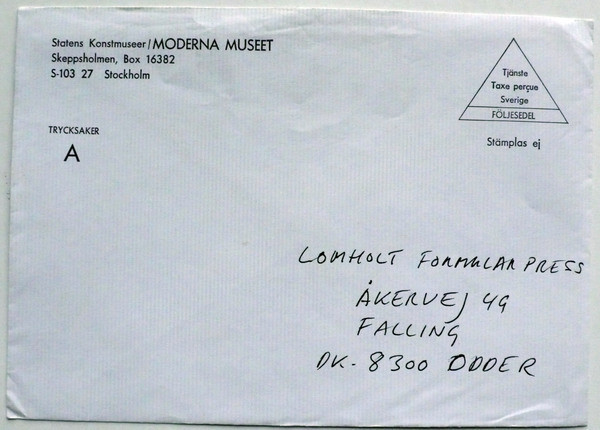 Statens Konstmuseer/MODERNA MUSEET
Skeppsholmen, Box 16382
S-103 27 Stockholm
Tjänste
Taxe perçue
Sverige
FÖLJESEDEL
Stämplas ej
TRYCKSAKER
A
LOMHOLT FORMULAR PRESS
ÅKERVEJ 49
FALLING
DK-8300 ODDER